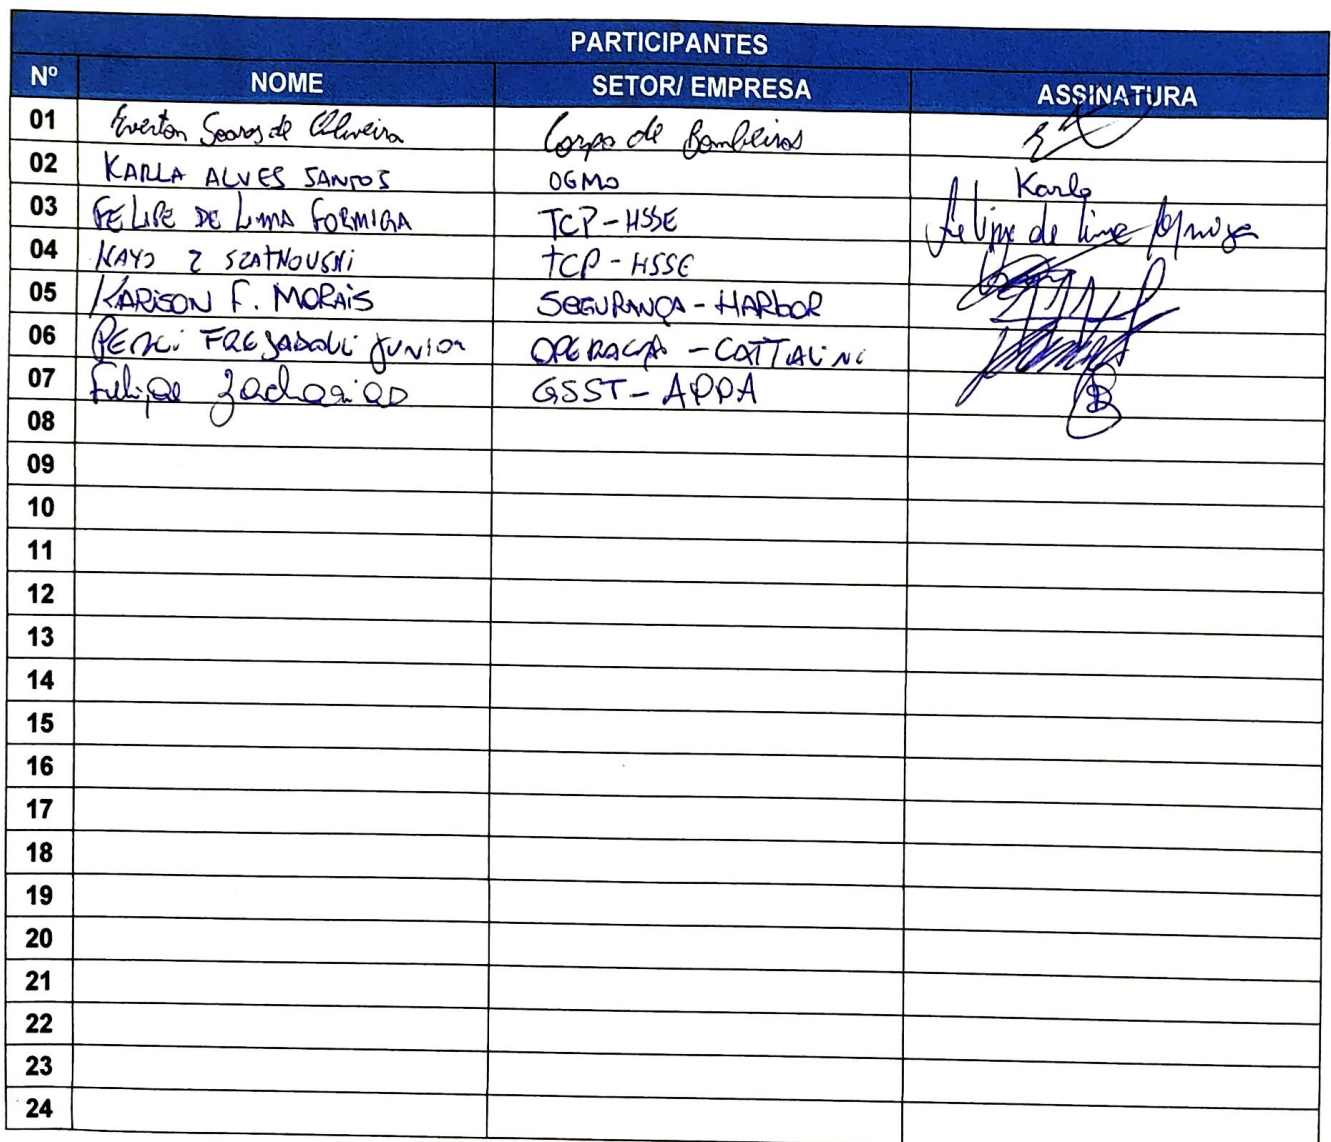 PARTICIPANTES
Nº NOME SETOR/ EMPRESA ASSINATURA
01 Everton Soares de Oliveira Corpo de Bombeiros
02 KARLA ALVES SANTOS OGMO Karla
03 FELIPE DE LIMA FORMIGA TCP-HSSE Felipe de Lima Formiga
04 KAYO TCP - HSSE
05 KARISON F. MORAIS SEGURANÇA - HARBOR
06 JUNIOR OPERAÇÃO - CATTALINI
07 Felipe Zacharias GSST - APPA
08
09
10
11
12
13
14
15
16
17
18
19
20
21
22
23
24